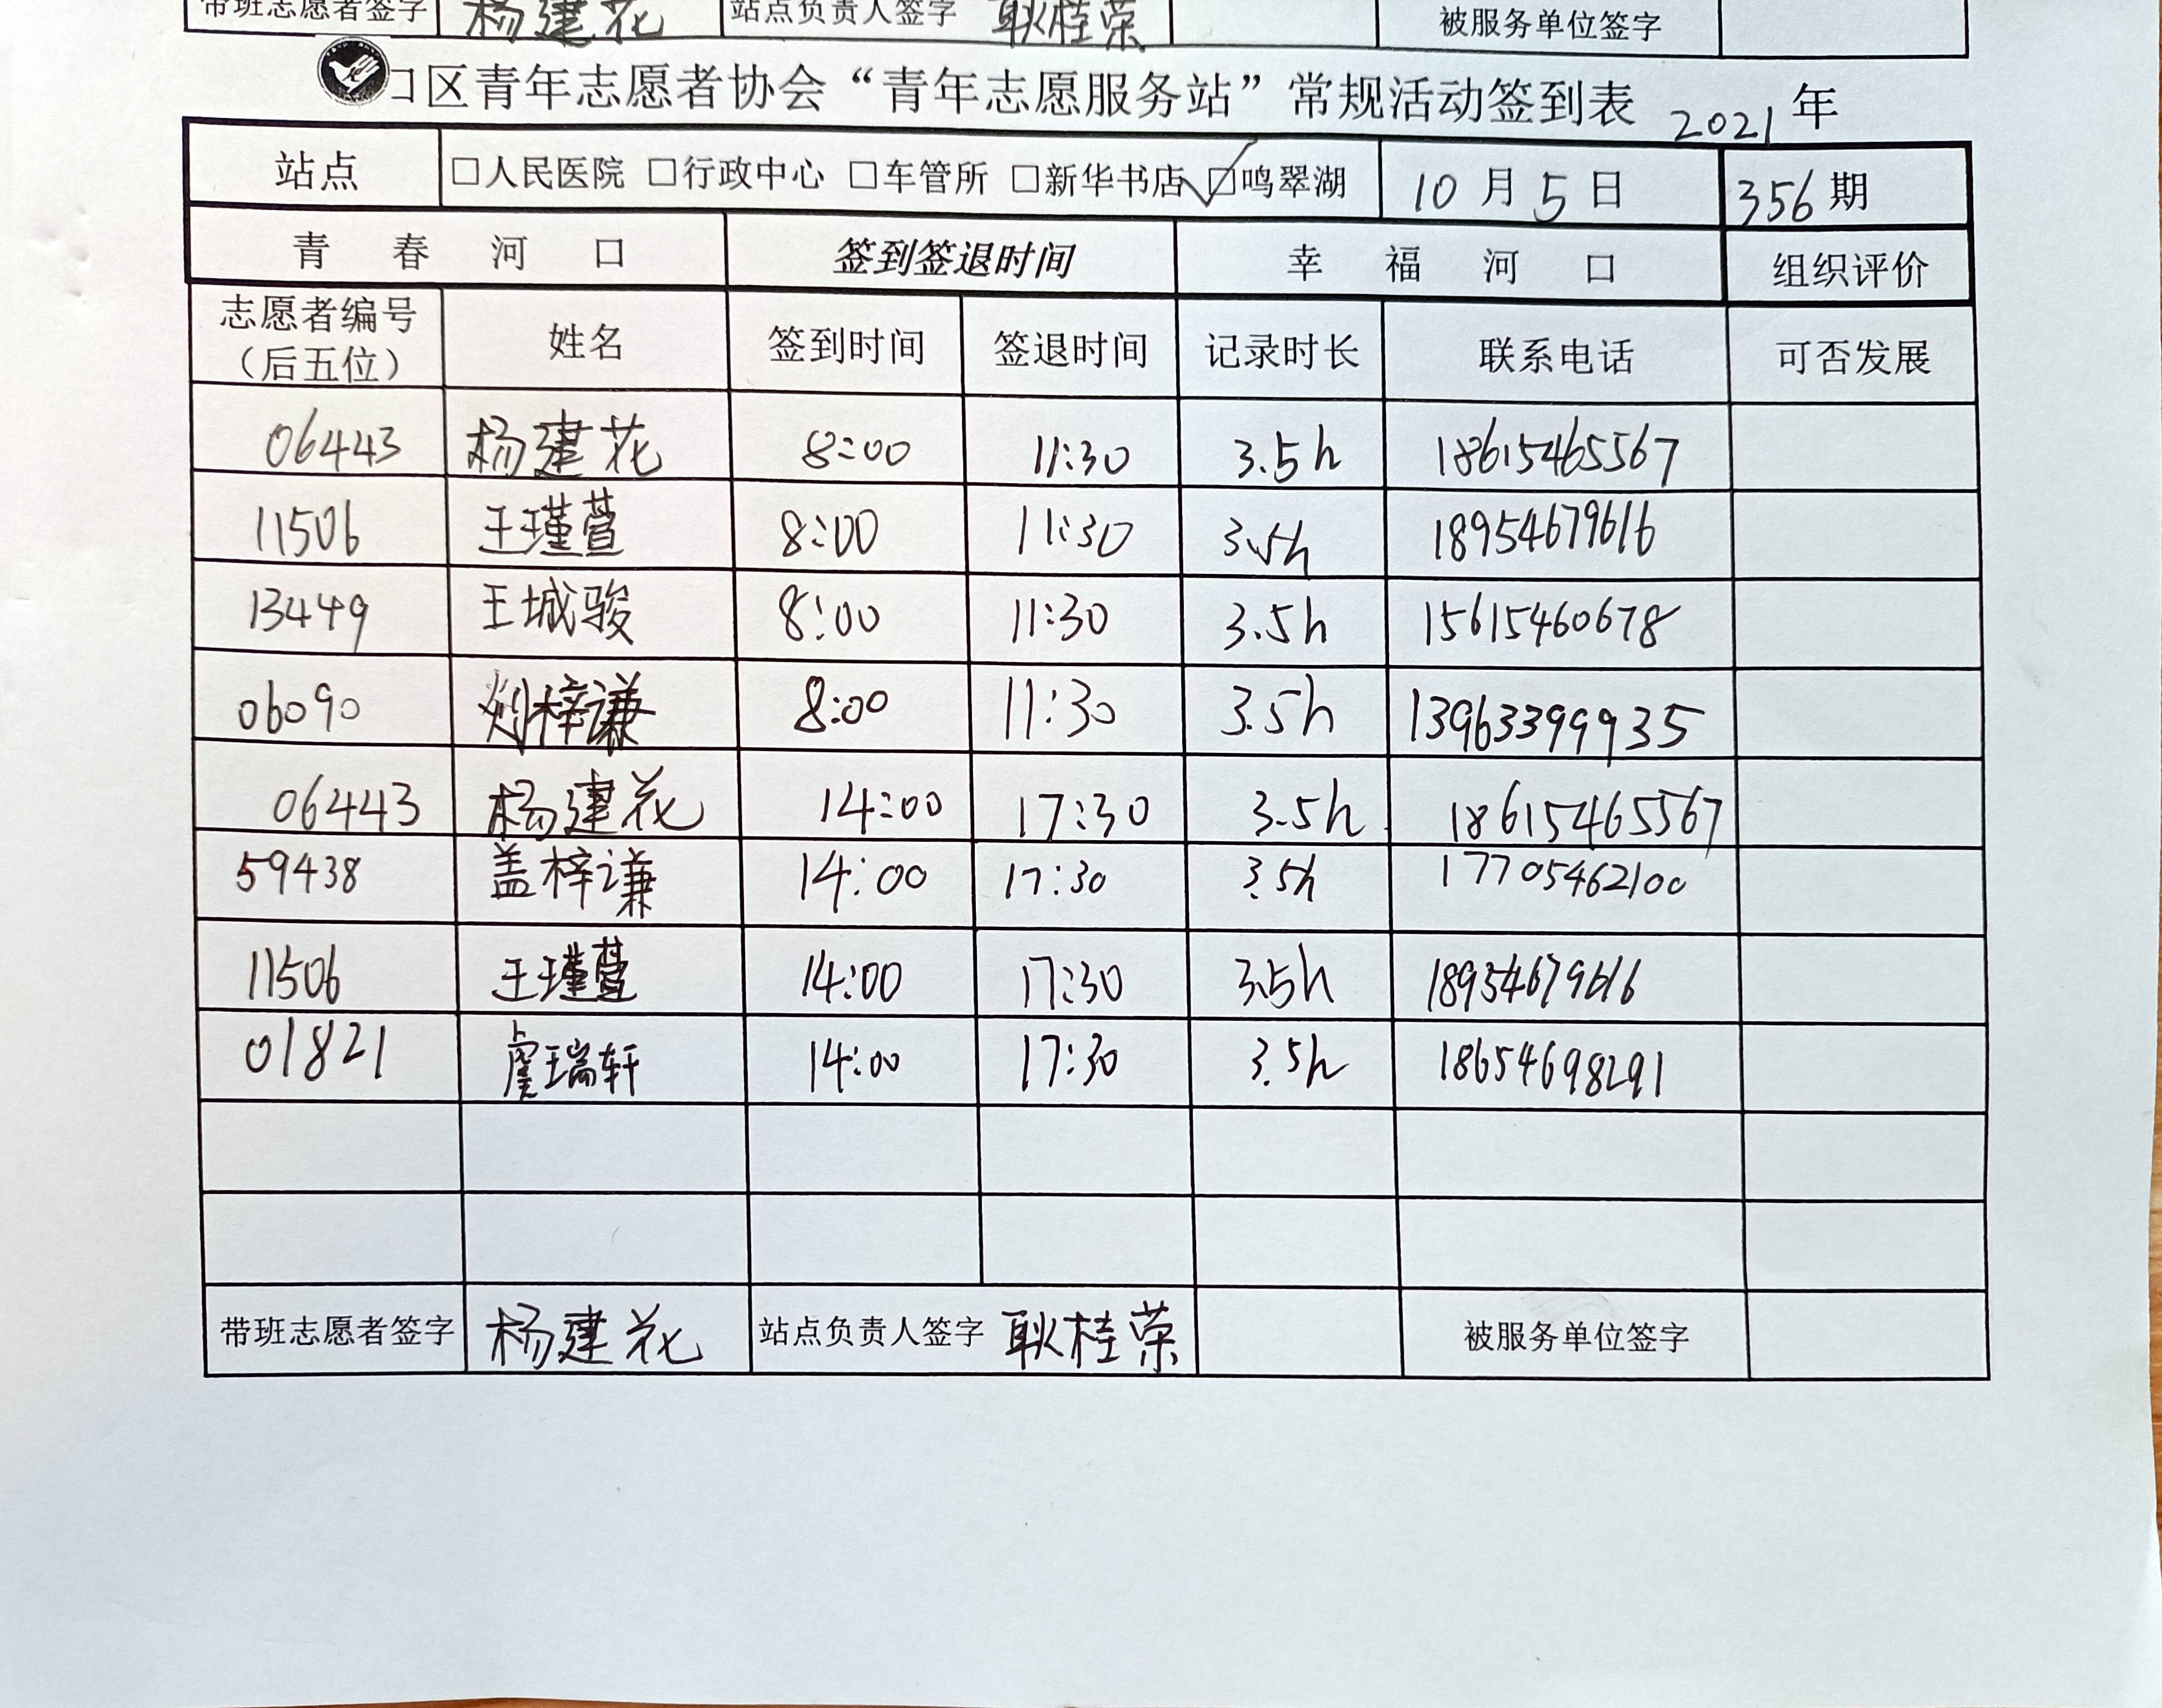 带班志愿者签字 杨建花 站点负责人签字 耿桂荣 被服务单位签字
口区青年志愿者协会“青年志愿服务站”常规活动签到表 2021年
站点 □人民医院 □行政中心 □车管所 □新华书店 ☑鸣翠湖 10月5日 356期
青春河口 签到签退时间 幸福河口 组织评价
志愿者编号（后五位） 姓名 签到时间 签退时间 记录时长 联系电话 可否发展
06443 杨建花 8:00 11:30 3.5h 18615465567
11506 王瑾萱 8:00 11:30 3.5h 18954679616
13449 王城骏 8:00 11:30 3.5h 15615460678
06090 刘梓谦 8:00 11:30 3.5h 13963399935
06443 杨建花 14:00 17:30 3.5h 18615465567
59438 盖梓谦 14:00 17:30 3.5h 17705462100
11506 王瑾萱 14:00 17:30 3.5h 18954679616
01821 虞瑞轩 14:00 17:30 3.5h 18654698291
带班志愿者签字 杨建花 站点负责人签字 耿桂荣 被服务单位签字